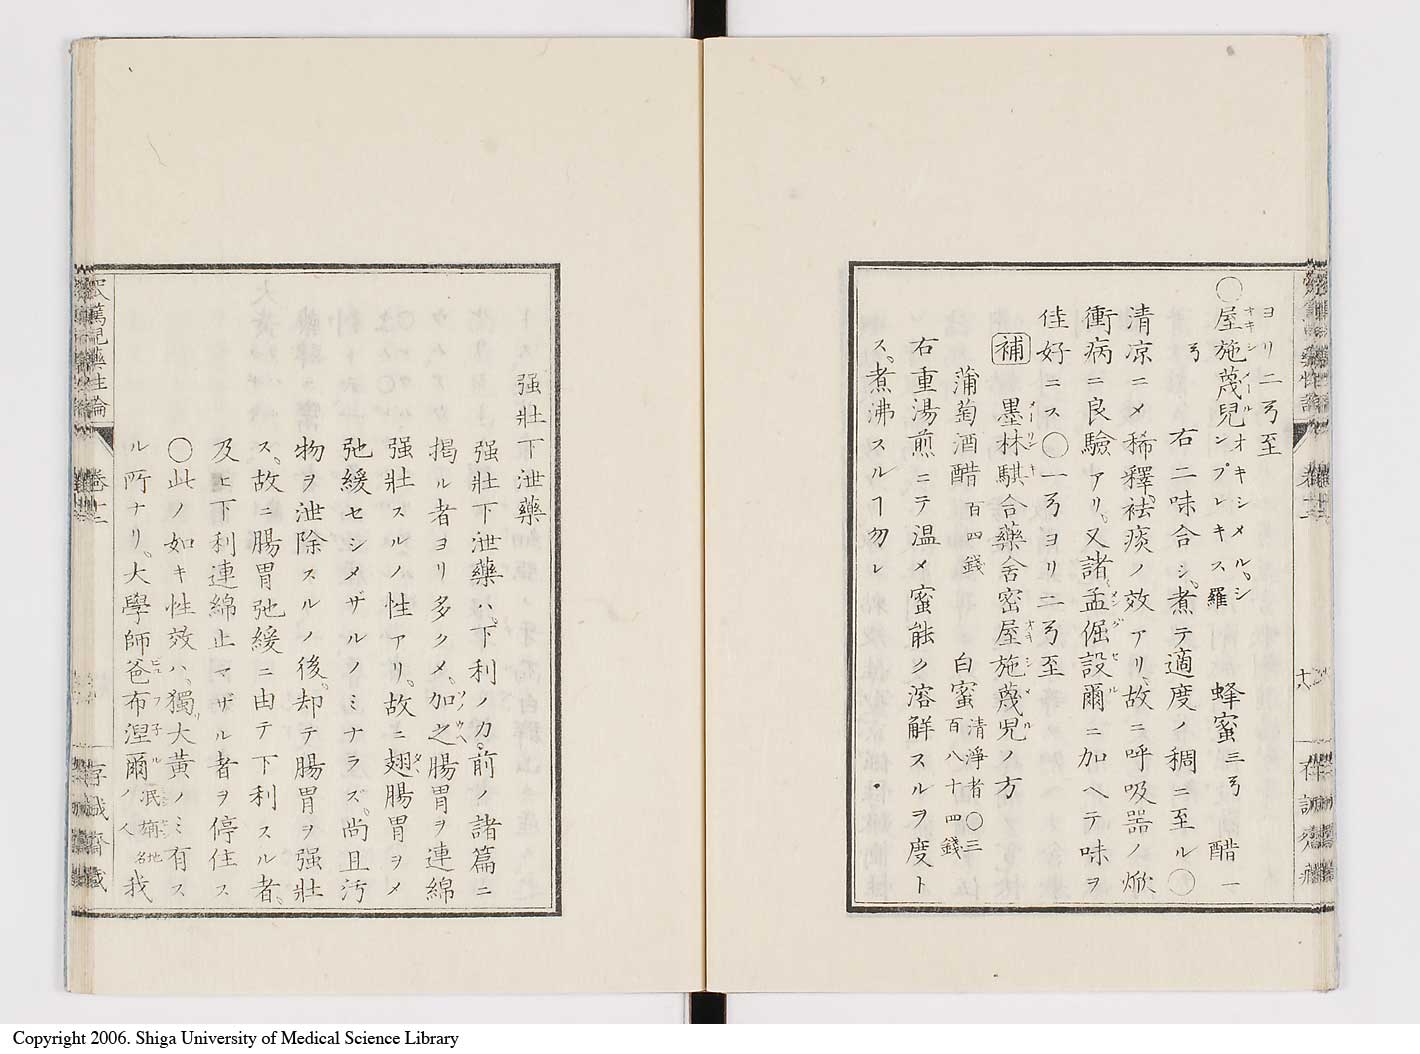 ヨリ二ｦ至
〇屋施蔑兒オキシメルオキシメル、シンプレキス羅 蜂蜜三ｦ 醋一
ｦ 右二味合シ、煮テ適度ノ稠ニ至ル〇
清涼ニメ稀釋、袪痰ノ效アリ、故ニ呼吸器ノ焮
衝病ニ良驗アリ、又諸孟倔設爾メングセルニ加ヘテ味ヲ
佳好ニス〇一ｦヨリ二ｦ至
補 墨林騏メーリンキ合藥舍密屋施蔑兒オキシメルノ方
蒲萄酒醋百四錢 白蜜清淨者〇三百八十四錢
右重湯煎ニテ温メ蜜能ク溶解スルヲ度ト
ス、煮沸スルヿ勿レ
强壯下泄藥
强壯下泄藥ハ、下利ノ力、前ノ諸篇ニ
揭ル者ヨリ多クメ、加之ノミナラス腸胃ヲ連綿
强壯スルノ性アリ、故ニ翅タヾ腸胃ヲメ
弛緩セシメザルノミナラズ、尚且汚
物ヲ泄除スルノ後、却テ腸胃ヲ强壯
ス、故ニ腸胃弛緩ニ由テ下利スル者、
及ヒ下利連綿止マザル者ヲ停住ス
〇此ノ如キ性效ハ、獨大黃ノミ有ス
ル所ナリ、大學師爸布涅爾ノ人 我
窊萬兒藥性論 卷十二
存誠齋藏